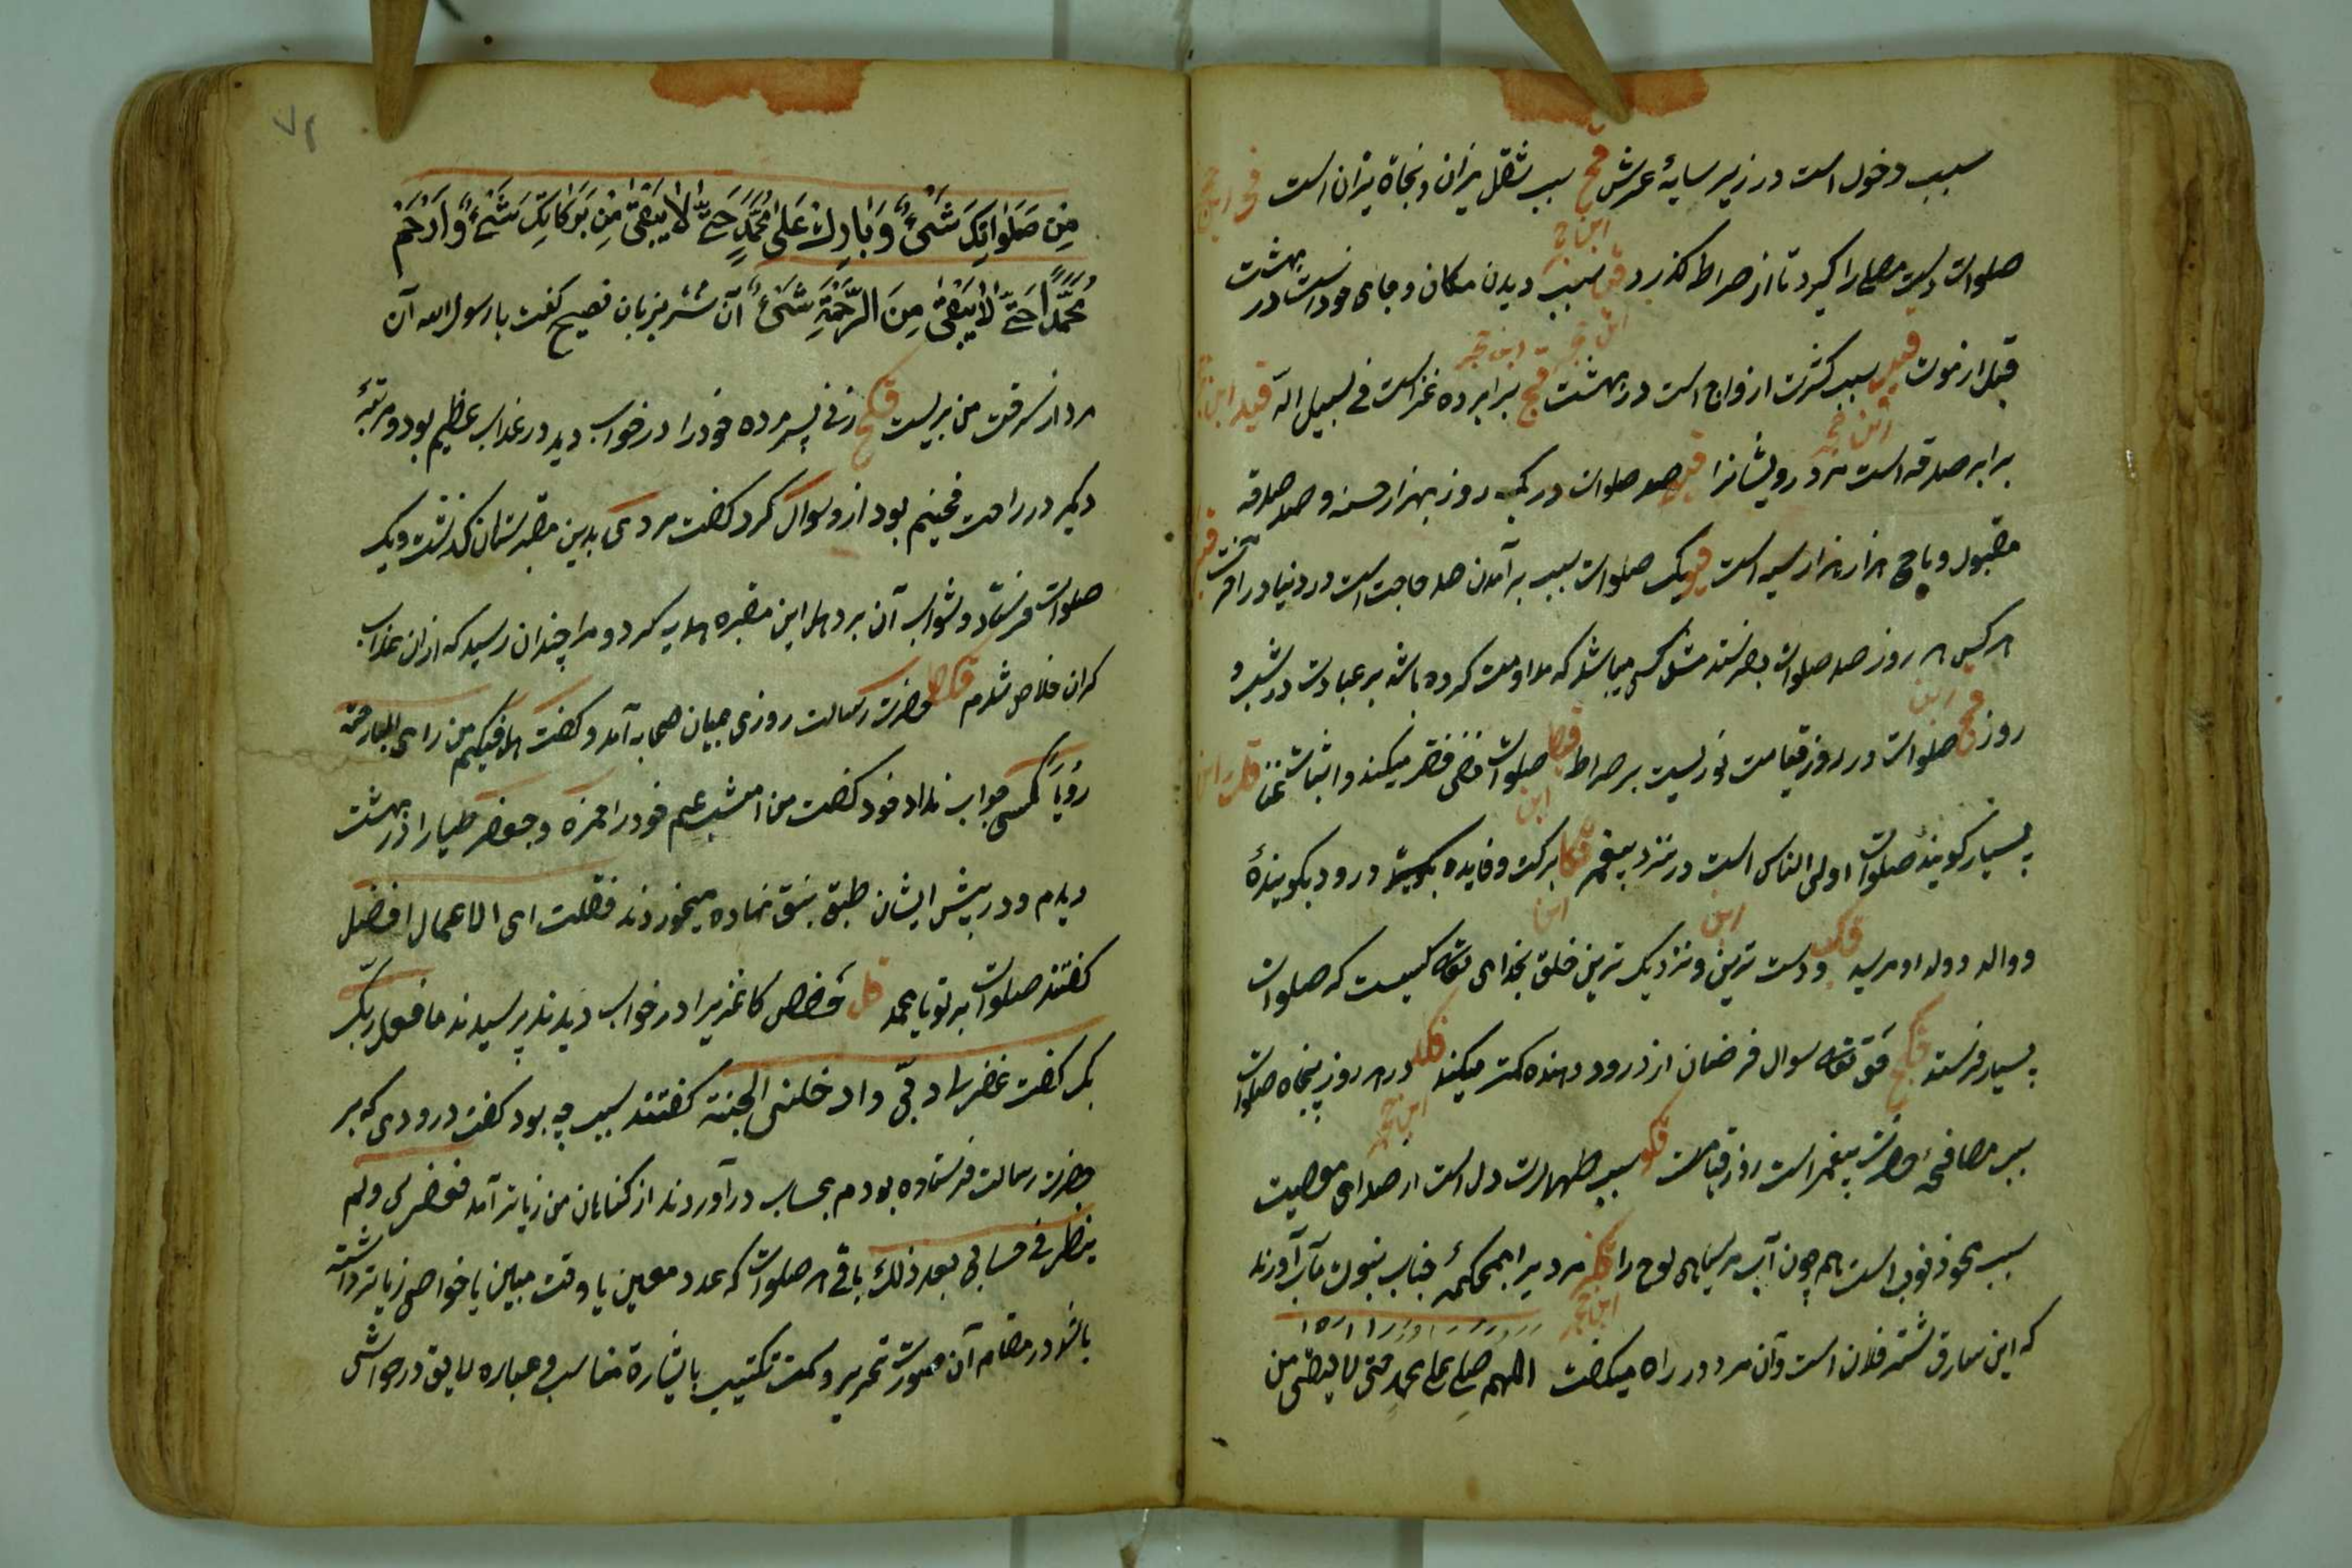 سبب دخول است در زیر سایهٔ عرش قح سبب ثقل میزان و نجاة نیران است
صلوات دست مصلے را گیرد تا از صراط گذرد سبب دیدن مکان و جای خود است در بهشت
قبل از موت سبب کثرت ازواج است در بهشت برابر ده غزاست فی سبیل الله
برابر صدقه است مر درویشانرا صد صلوات در یک روز بهزار حسنه و صد صدقه
مقبول و ماحی هزار هزار سیه است یک صلوات سبب بر آمدن صد حاجت است در دنیا و در آخرت
هر کس هر روز صد صلوات بفرستد مثل کسی میباشد که مداومت کرده باشد بر عبادت در شب و
روز صلوات در روز قیامت نوریست بر صراط قیط صلوات نفی فقر میکند و اثبات غنا
بسیار گویندهٔ صلوات اولی الناس است در نزد پیغمبر قکا برکت و فایده درود بگویندهٔ
و والد و ولد او میرسد قکب دوست ترین و نزدیک ترین خلق بخدای تعالی کیست که صلوات
بسیار فرستد قکج حق تعالی سوال فرضمان از درود دهنده کمتر میکند قکد در هر روز پنجاه صلوات
سبب مصافحهٔ حضرت پیغمبر است روز قیامت قکو سبب طهارت دل است از صدای معصیت
سبب محو ذنوب است هم چون آب مر سیاهی لوح را قکز مردیرا بمحکمهٔ جناب نبوت مآب آوردند
که این سارق شتر فلان است و آن مرد در راه میگفت اللهم صل علی محمد حتی لا یبقی من
مِن صَلَوٰاتِکَ شَیْءٌ وَبٰارِکْ عَلیٰ مُحَمَّدٍ حَتّیٰ لاٰ یَبْقیٰ مِن بَرَکٰاتِکَ شَیْءٌ وَارْحَمْ
مُحَمَّداً حَتّیٰ لاٰ یَبْقیٰ مِنَ الرَّحْمَةِ شَیْءٌ آن شتر بزبان فصیح گفت یا رسول الله آن
مرد از سرقت من بریست قکح زنی پسر مرده خود را در خواب دید در عذاب عظیم بود و مرتبهٔ
دیگر در راحت فخیم بود از او سوال کرد گفت مردی بدین مقبرستان گذشت و یک
صلوات فرستاد و ثواب آن بر اهل این مقبره هدیه کرد و مرا چندان رسید که از ان عذاب
کران خلاص شدم قکط حضرت رسالت روزی میان صحابه آمد و گفت هل فیکم من رای البارحة
رُؤیاً کسی جواب نداد خود گفت من امشب عم خود را حمزه و جعفر طیار را در بهشت
دیدم و در پیش ایشان طبق نبق نهاده میخوردند فقلت ای الاعمال افضل
گفتند صلوات بر تو یا محمد قل کاغذیرا در خواب دیدند پرسیدند ما فعل ربک
بک گفت غفر لی ربّی و ادخلنی الجنة گفتند سبب چه بود گفت درودی که بر
حضرت رسالت فرستاده بودم بحساب در آوردند از گناهان من زیاتر آمد فغفر لی و لم
ینظر فی حسابی بعد ذلک باقی هر صلوات که عدد معین یا وقت مبین یا خواص زیاتر داشته
باشد در مقام آن صورت تحریر و سمت تکتیب باشارة مناسب و عباره لایق در حواشی